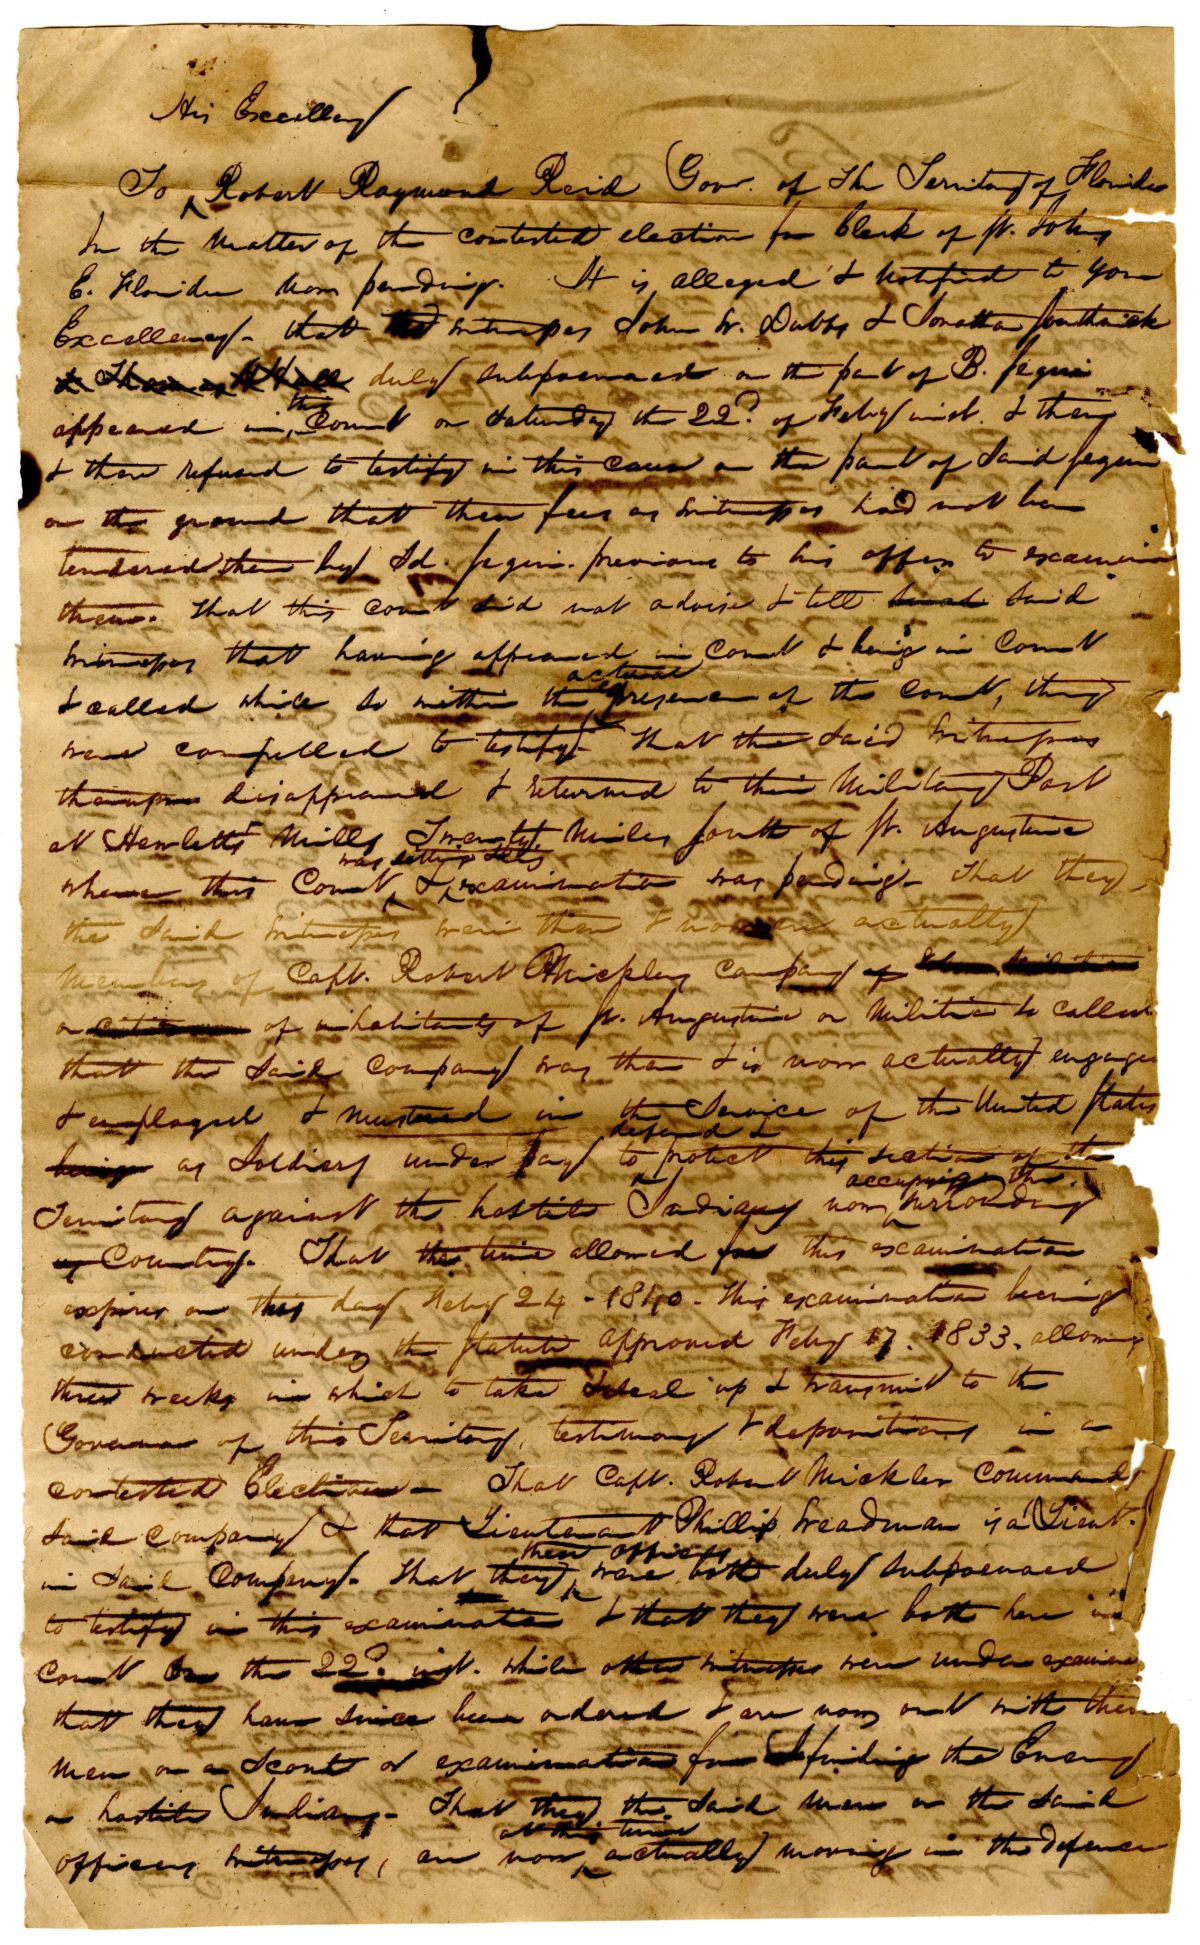 His Excellency
To Robert Raymond Reid Govr. of the Territory of Florida
In the matter of the contested election for Clerk of St. Johns
E. Florida now pending. It is alleged & notified to your
Excellency - that witnesses John W. Dabbs & Jonatha Southwick
& Thomas H Hall duly subpoenaed on the part of B. Segui
appeared in the Court on Saturday the 22d. of Feby inst. & then
& there refused to testify in this cause on the part of Said Segui
on the ground that their fees as witnesses had not been
tendered them by Sd. Segui previous to his offer to examine
them. That this court did not advise & tell Said
witnesses that having appeared in Court & being in Court
& called while so within the actual presence of the Court, they
were compelled to testify - That the Said witnesses
thereupon disappeared & returned to their Military Post
at Hewletts Mills Twenty Miles South of St. Augustine
where this Court was sitting & examination was pending - That they
the Said witnesses were then & now are actually
Members of Capt. Robert Mickler's company of
or citizens of inhabitants of St. Augustine or Militia so called
that the Said company was then & is now actually engaged
& employed & mustered in the Service of the United States
being as Soldiers under pay to defend & protect this section of the
Territory against the hostile Indians now occupying the surrounding
Country. That the time allowed for this examination
expires on this day Feby 24 - 1840 - this examination being
conducted under the Statute approved Feby 17. 1833. allowing
three weeks in which to take & seal up & transmit to the
Governor of this Territory, testimony & depositions in a
contested Election - That Capt. Robert Mickler Commands
Said company & that Lieutenant Phillip Weadman is a Lieut.
in Said Company. That they these officers were both duly subpoenaed
to testify in this examination & that they were both here in
Court on the 22d. inst. while other witnesses were under examine
that they have since been ordered & are now out with their
men on a Scout or examination for finding the Enemy
or hostile Indians - That they the Said men or the Said
officers witnesses, are now at this time actually moving in the defence